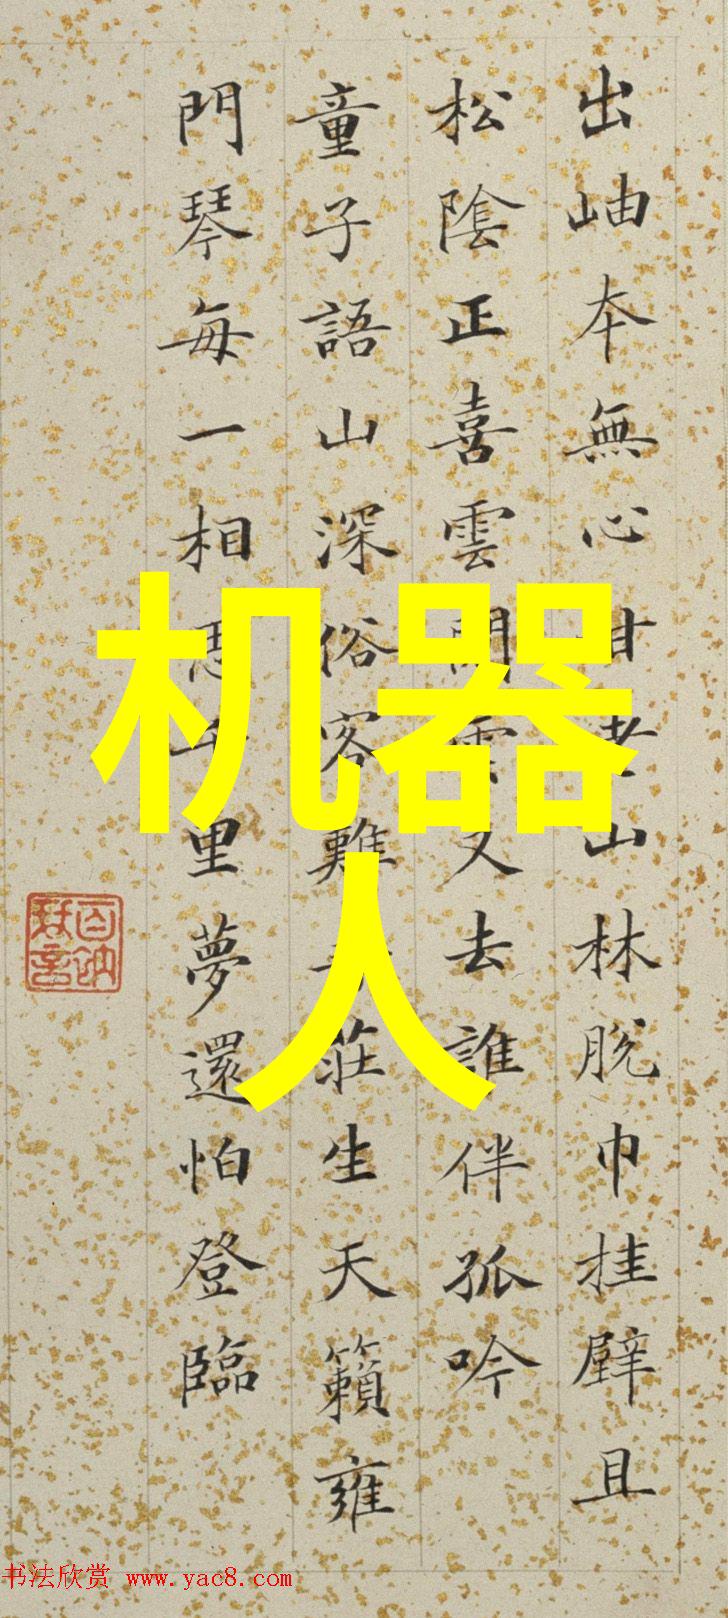 出岫本無心甘老山林脫巾挂壁且
松陰正喜雲雲又去誰伴孤吟
童子語山深俗客難莊生天籟雍
門琴每一相思千里夢還怕登臨
机器
人
书法欣赏 www.yac8.com